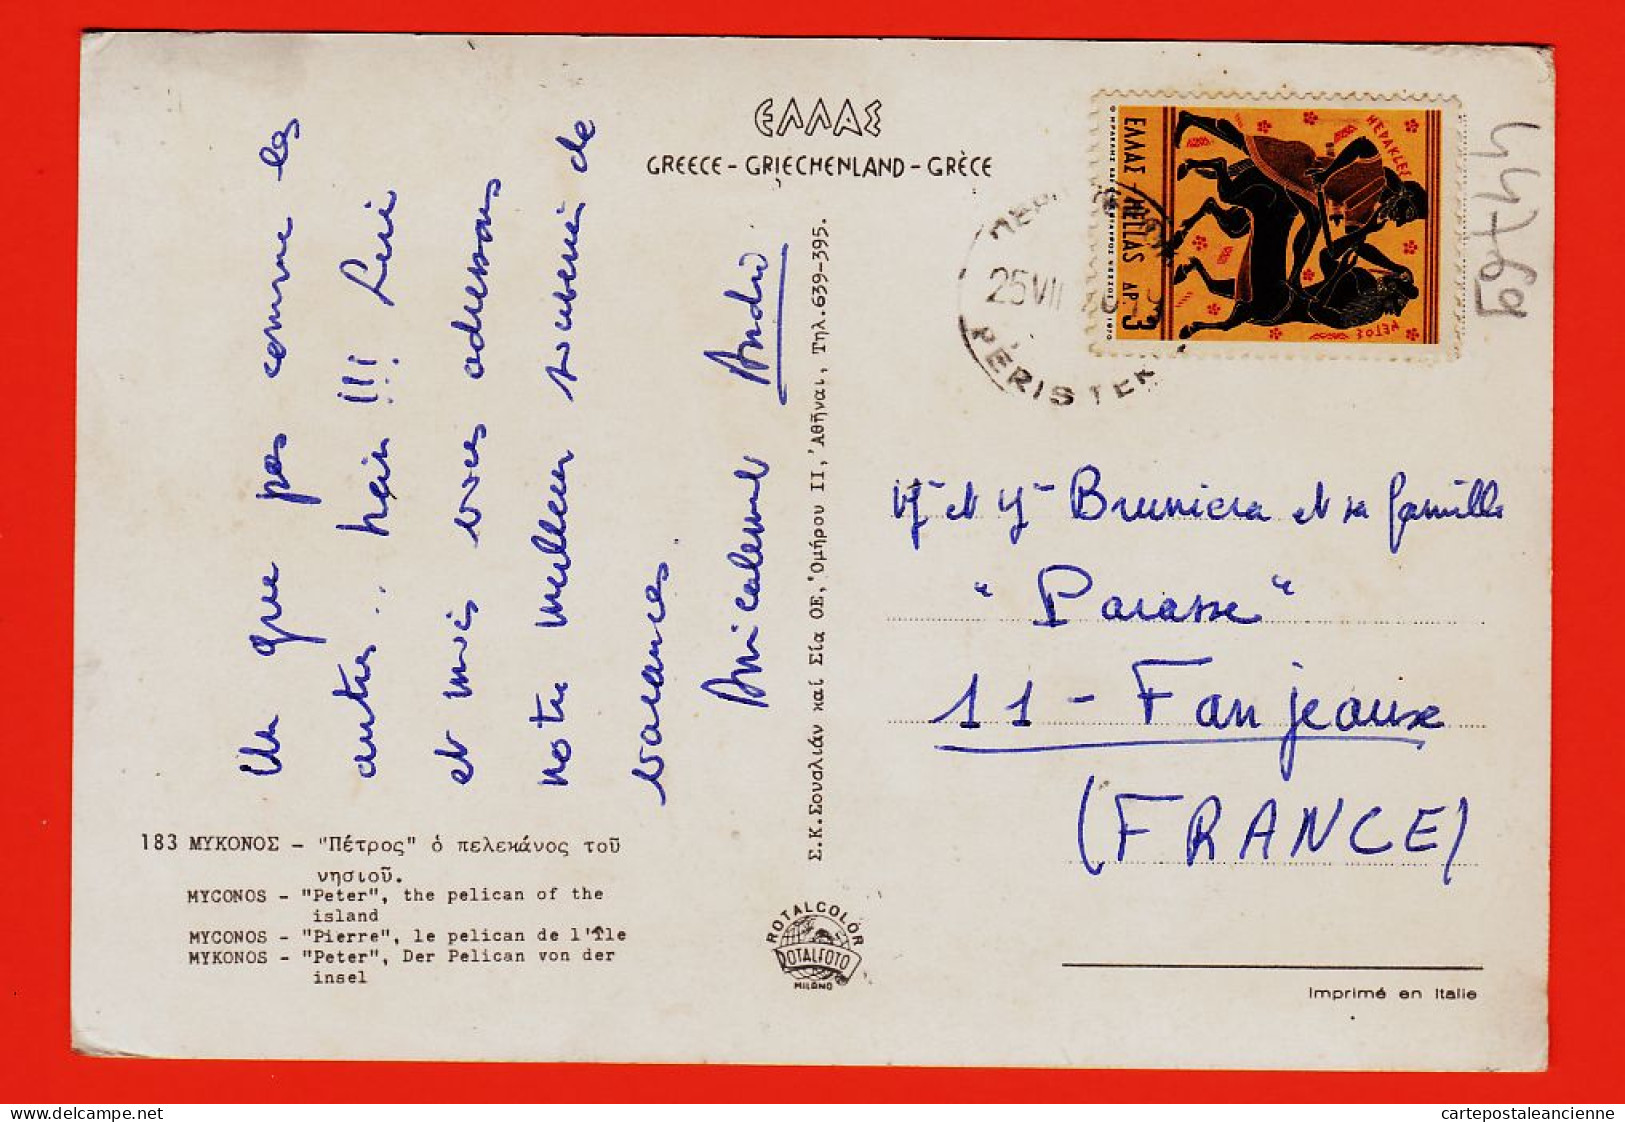 Un que pas comme les
autres.. hein !!! Lui
et mois vous adressons
notre meilleur souvenir de
vacances
Amicalement André
183 ΜΥΚΟΝΟΣ - "Πέτρος" ὁ πελεκάνος τοῦ
νησιοῦ.
MYCONOS - "Peter", the pelican of the
island
MYCONOS - "Pierre", le pelican de l'île
MYKONOS - "Peter", Der Pelican von der
insel
ΕΛΛΑΣ
GREECE - GRIECHENLAND - GRÈCE
Σ.Κ.Σουαλιάν καί Σία ΟΕ, Ὁμήρου ΙΙ, Ἀθῆναι, Τηλ.639-395.
ROTALCOLOR
ROTALFOTO
MILANO
ΕΛΛΑΣ HELLAS ΔΡ. 3
ΗΕΡΑΚΛΕΣ
ΝΕΤΟΣ
1970
25 VII
PERISTER
44769
Mr et Mme Bruniera et sa famille
"Parasse"
11 - Fanjeaux
(FRANCE)
Imprimé en Italie
cartepostaleancienne